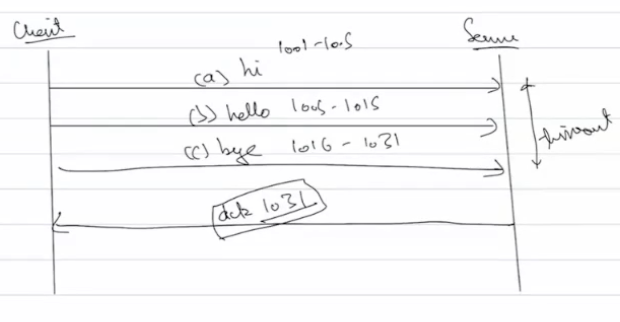 Client
Server
1001-1005
(a) hi
(b) hello 1005-1015
(c) bye 1016 - 1031
timeout
ack 1031